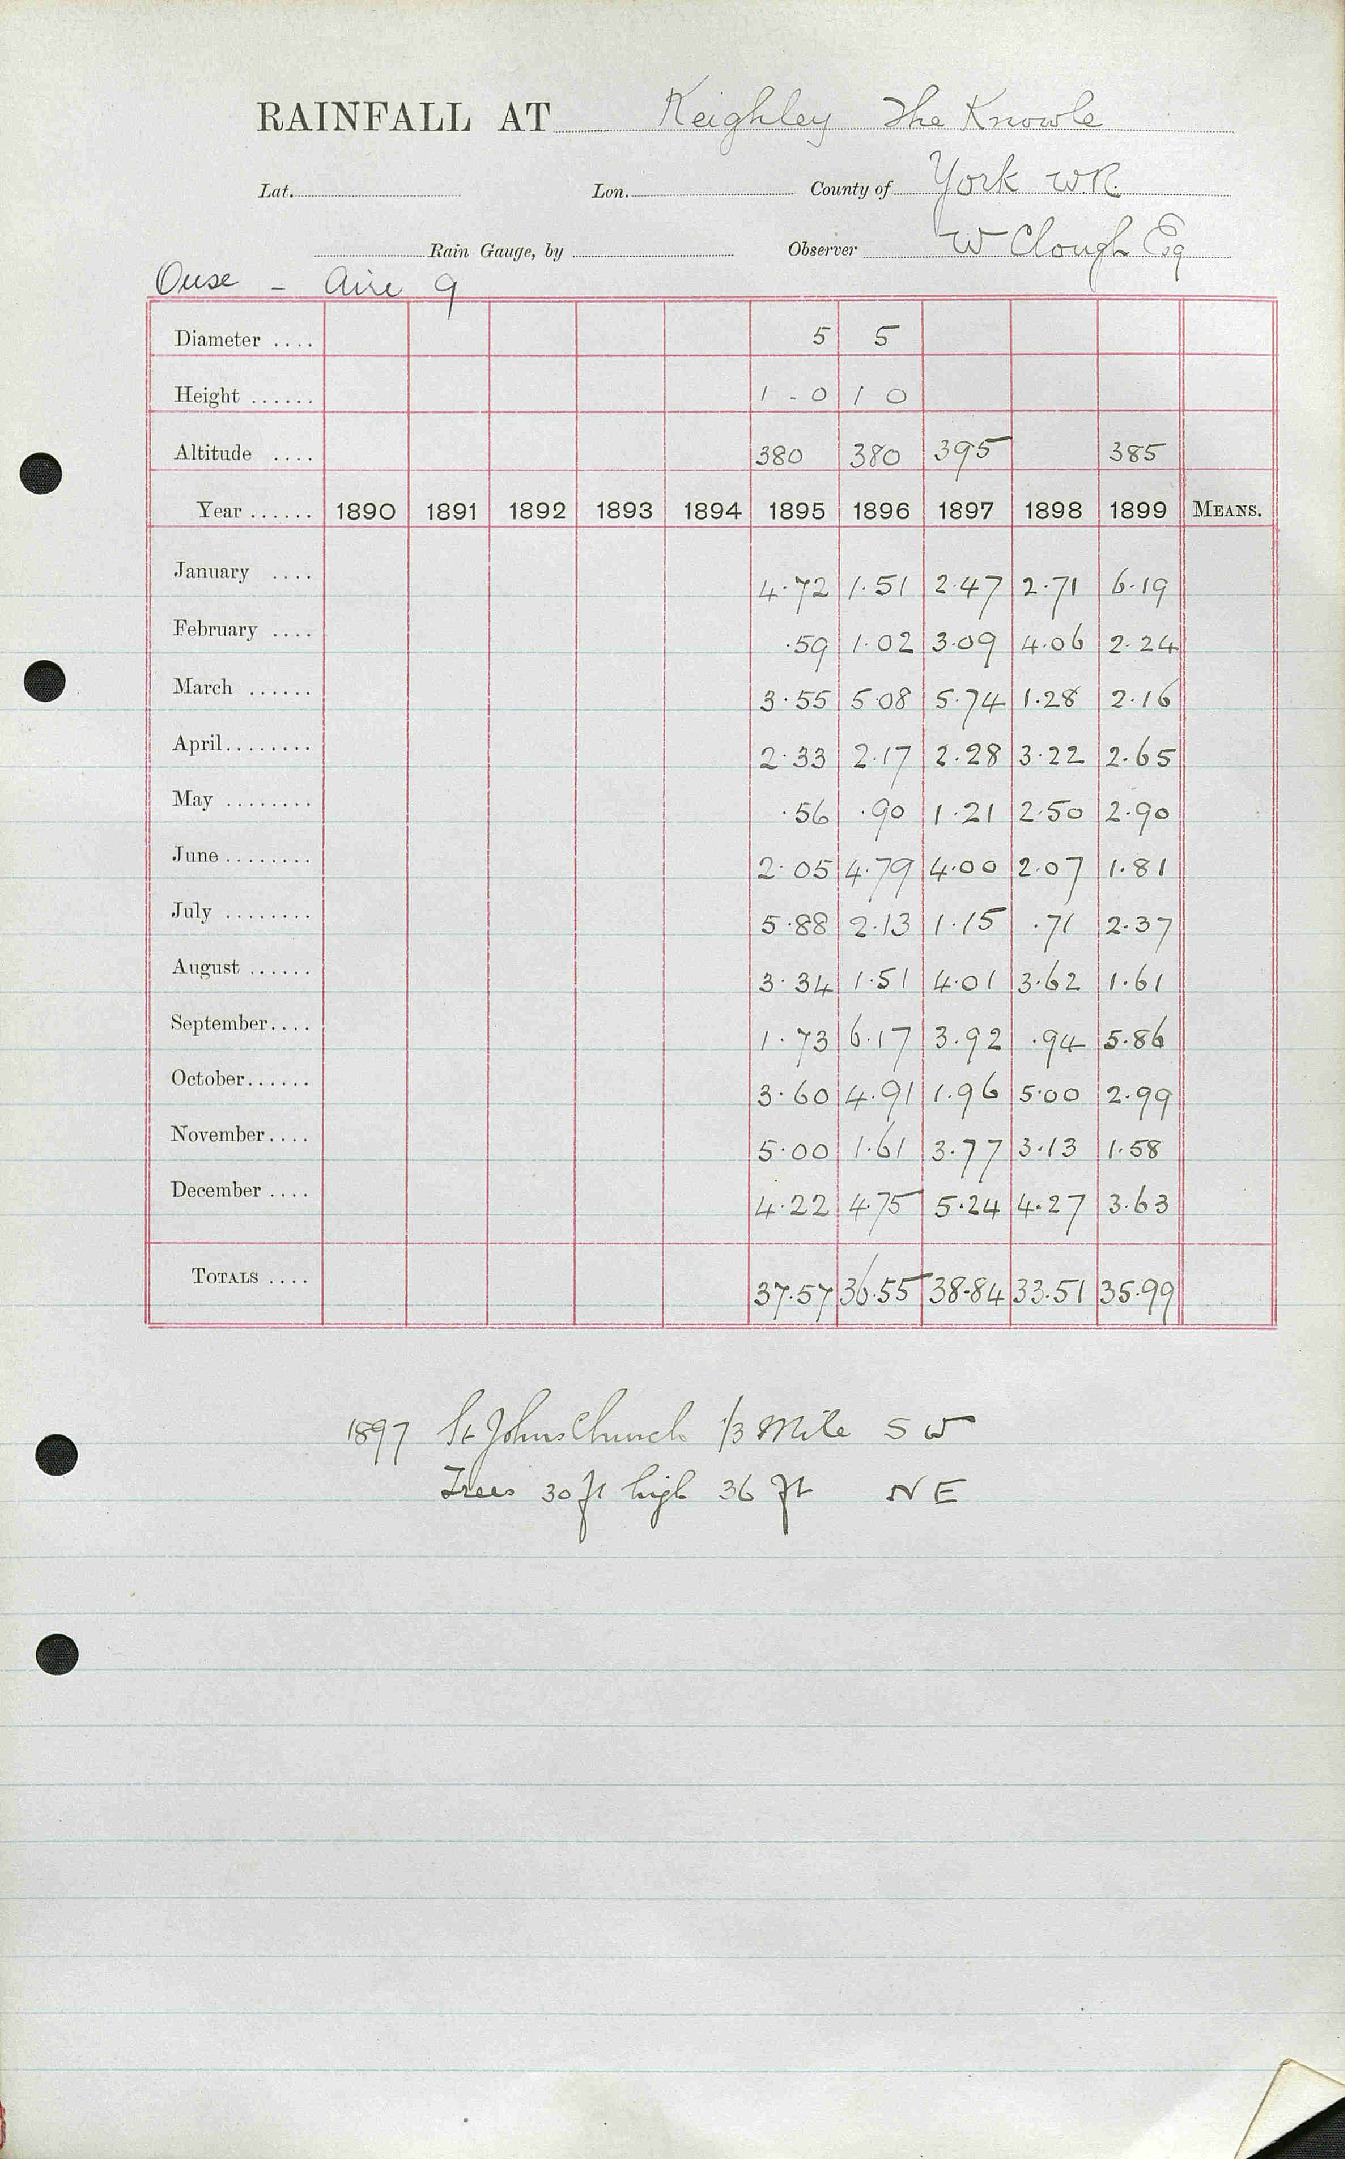 RAINFALL AT Keighley The Knowle
Lat. Lon. County of York WR.
Rain Gauge, by Observer W Clough Esq
Ouse - Aire 9
Diameter .... 5 5
Height ...... 1-0 1 0
Altitude .... 380 380 395 385
Year ...... 1890 1891 1892 1893 1894 1895 1896 1897 1898 1899 MEANS.
January .... 4.72 1.51 2.47 2.71 6.19
February .... .59 1.02 3.09 4.06 2.24
March ...... 3.55 5.08 5.74 1.28 2.16
April........ 2.33 2.17 2.28 3.22 2.65
May ........ .56 .90 1.21 2.50 2.90
June ........ 2.05 4.79 4.00 2.07 1.81
July ........ 5.88 2.13 1.15 .71 2.37
August ...... 3.34 1.51 4.01 3.62 1.61
September.... 1.73 6.17 3.92 .94 5.86
October...... 3.60 4.91 1.96 5.00 2.99
November.... 5.00 1.61 3.77 3.13 1.58
December .... 4.22 4.75 5.24 4.27 3.63
TOTALS .... 37.57 36.55 38.84 33.51 35.99
1897 St Johns Church 1/3 Mile S W
Trees 30 ft high 36 ft N E